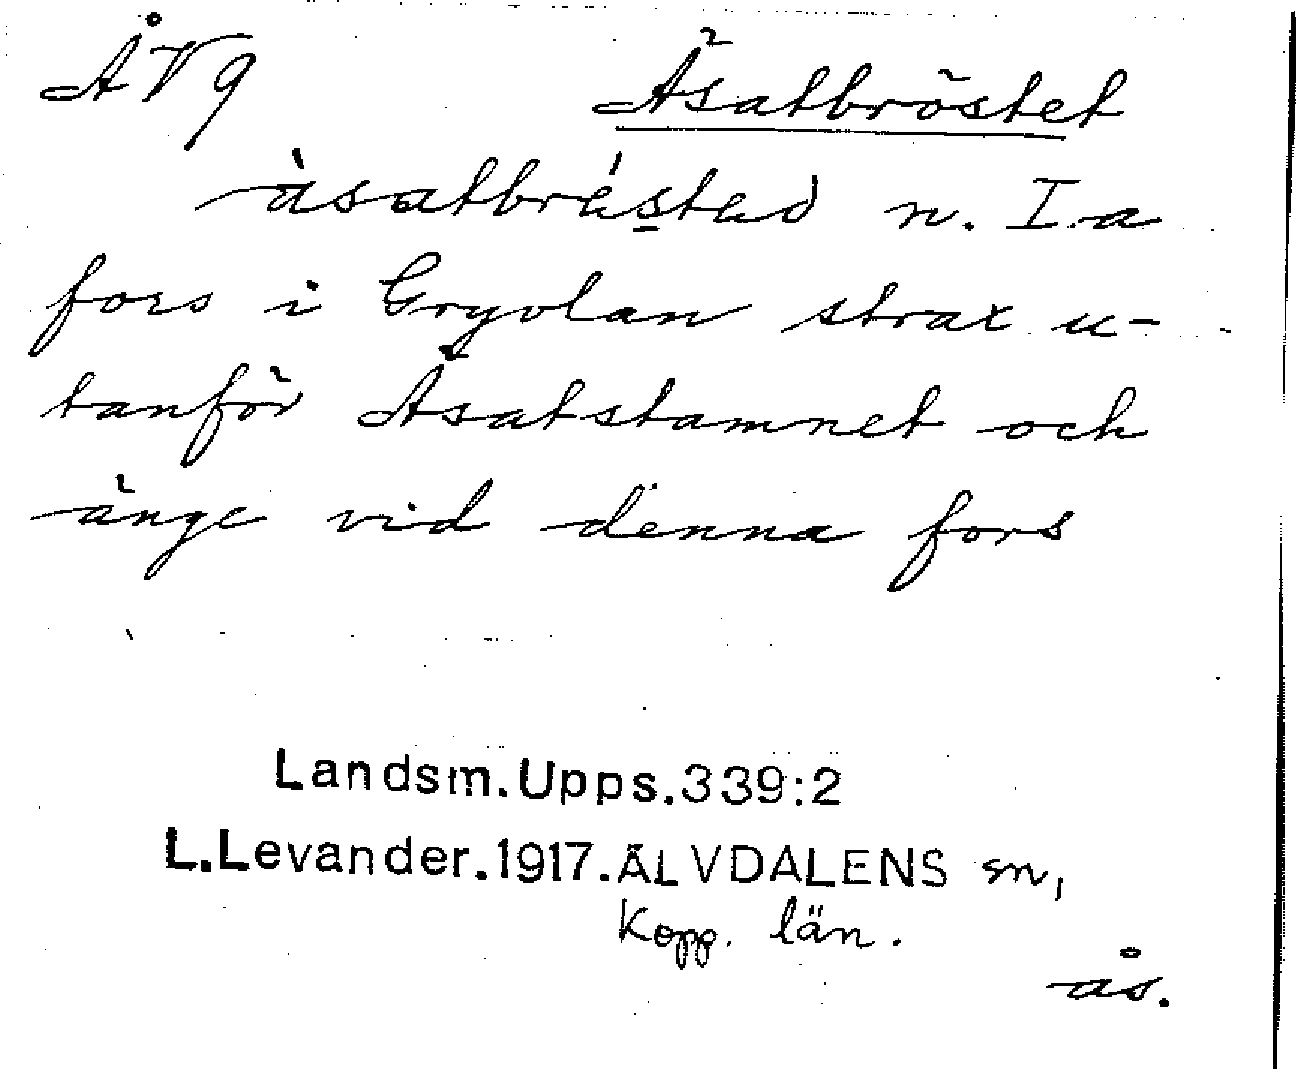 ÅV9
Äsatbröstet
àsatbrèsted n. I.a
fors i Gryvlan strax u-
tanför Äsatstamnet och
änge vid denna fors
Landsm.Upps.339:2
L.Levander.1917.ÄLVDALENS sn,
Kopp. län.
ås.